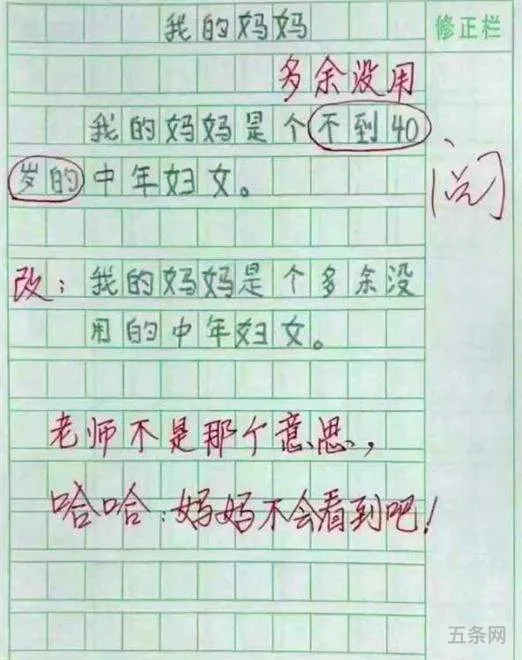 我的妈妈
修正栏
多余没用
我的妈妈是个不到40
岁的中年妇女。
阅
改：我的妈妈是个多余没
用的中年妇女。
老师不是那个意思，
哈哈：妈妈不会看到吧！
五条网